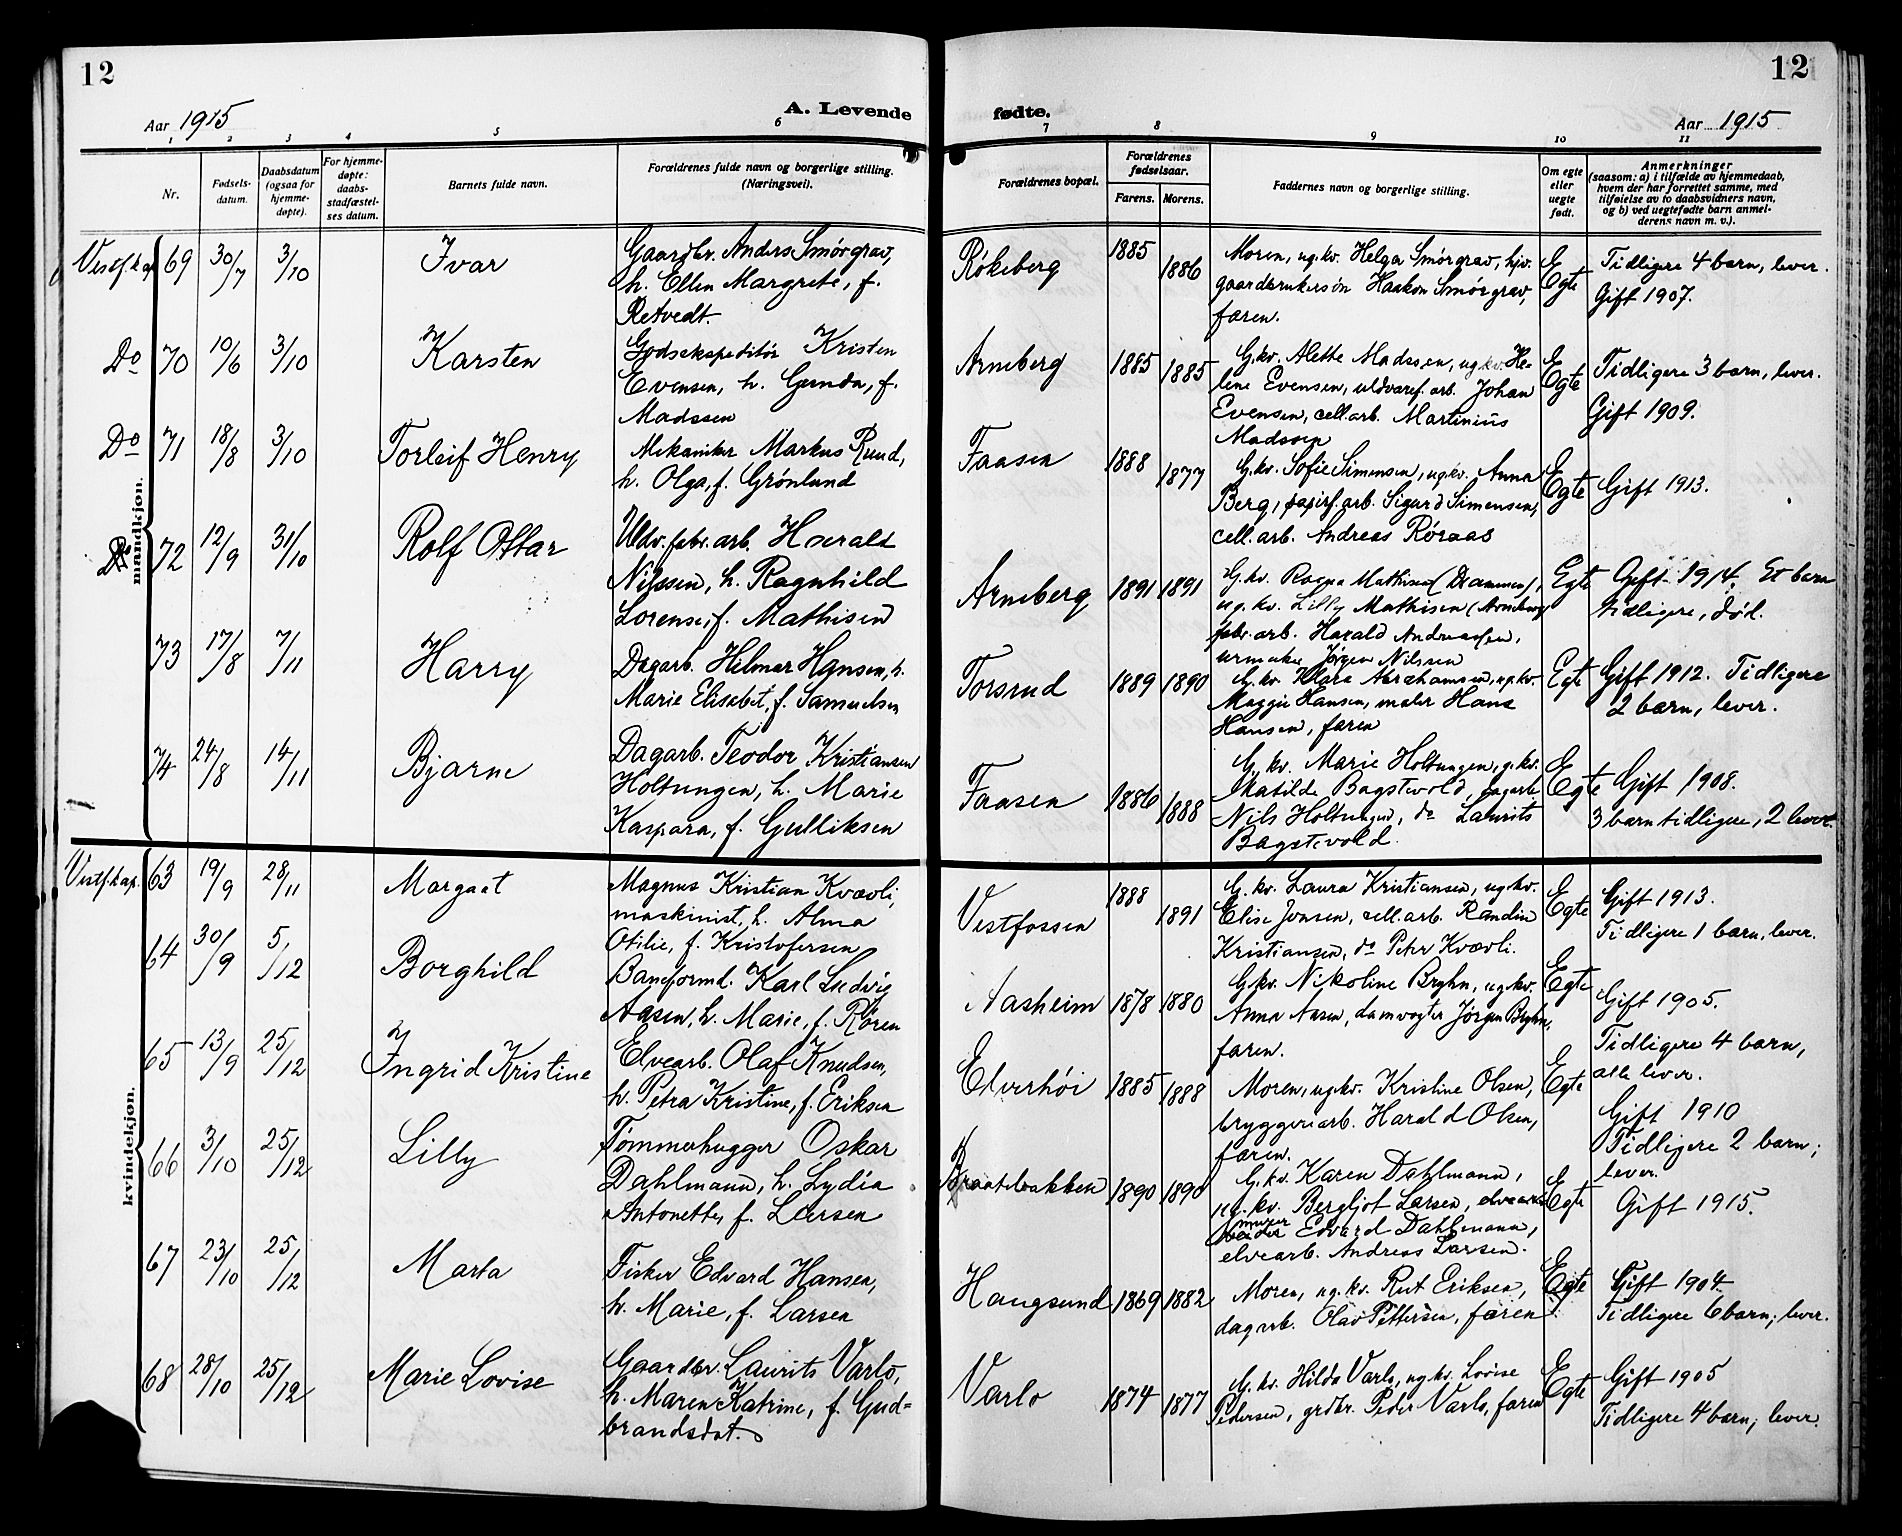 12
12
Aar 1915
A. Levende
fødte.
Aar 1915
1 2 3 4 5 6 7 8 9 10 11
Nr.
Fødsels-
datum.
Daabsdatum
(ogsaa for
hjemme-
døpte).
For hjemme-
døpte:
daabs-
stadfæstel-
ses datum.
Barnets fulde navn.
Forældrenes fulde navn og borgerlige stilling.
(Næringsvei).
Forældrenes bopæl.
Forældrenes
fødselsaar.
Farens. Morens.
Faddernes navn og borgerlige stilling.
Om egte
eller
uegte
født.
Anmerkninger
(saasom: a) i tilfælde av hjemmedaab,
hvem der har forrettet samme, med
tilføielse av to daabsvidners navn,
og b) ved uegtefødte barn anmel-
derens navn m. v.).
mandkjøn.
Vestf. kap. 69 30/7 3/10 Ivar
Gaardbr. Anders Smørgrav,
h. Ellen Margrete, f.
Retvedt.
Røkeberg 1885 1886
Moren, ug.kv. Helga Smørgrav, hjv.
gaardbrukersøn Haakon Smørgrav,
faren.
Egte
Tidligere 4 barn, lever.
Gift 1907.
Do 70 10/6 3/10 Karsten
Godsekspeditør Kristen
Evensen, h. Gunda, f.
Madssen
Arneberg 1885 1885
G.kv. Alette Madssen, ug.kv. He-
lene Evensen, uldvaref. arb. Johan
Evensen, cell.arb. Martinius
Madssen
Egte
Tidligere 3 barn, lever.
Gift 1909.
Do 71 18/8 3/10 Torleif Henry
Mekaniker Markus Ruud,
h. Olga, f. Grønlund
Faasen 1888 1877
G.kv. Sofie Simensen, ug.kv. Anna
Berg, papirf. arb. Sigurd Simensen,
cell. arb. Andreas Røraas
Egte
Gift 1913.
Do 72 12/9 31/10 Rolf Ottar
Uldv. fabr. arb. Harald
Nilssen, h. Ragnhild
Lorense, f. Mathisen
Arneberg 1891 1891
G.kv. Ragna Mathisen (Drammen),
ug. kv. Lilly Mathisen (Arneberg
fabr. arb. Harald Andreassen,
urmaker Jørgen Nilssen
Egte
Gift 1914. Et barn
tidligere, død.
73 17/8 7/11 Harry
Dagarb. Hilmar Hansen, h.
Marie Elisabet, f. Samuelsen
Torsrud 1889 1890
G.kv. Klara Abrahamsen, ug.kv.
Maggie Hansen, maler Hans
Hansen, faren
Egte
Gift 1912. Tidligere
2 barn, lever.
74 24/8 14/11 Bjarne
Dagarb. Teodor Kristiansen
Holtungen, h. Marie
Kaspara, f. Gulliksen
Faasen 1886 1888
G. kv. Marie Holtungen, g.kv.
Matilde Bagstevold, dagarb.
Nils Holtungen, do Laurits
Bagstevold.
Egte
Gift 1908.
3 barn tidligere, 2 lever.
kvindekjøn.
Vestf. kap. 63 19/9 28/11 Margaat
Magnus Kristian Kvævli,
maskinist, h. Alma
Otilie, f. Kristofersen
Vestfossen 1888 1891
G. kv. Laura Kristiansen, ug.kv.
Elise Jonsen, cell. arb. Randin
Kristiansen, do Peter Kvævli.
Egte
Gift 1913.
Tidligere 1 barn, lever.
64 30/9 5/12 Borghild
Baneformd. Karl Ludvig
Aasen, h. Marie, f. Røren
Aasheim 1878 1880
G.kv. Nikoline Bryhn, ug.kv.
Anna Aasen, damvogter Jørgen Bryhn,
faren.
Egte
Gift 1905.
Tidligere 4 barn,
alle lever.
65 13/9 25/12 Ingrid Kristine
Elvearb. Olaf Knudsen,
h. Petra Kristine, f. Eriksen
Elverhøi 1885 1888
Moren, ug.kv. Kristine Olsen,
bryggeriarb. Harald Olsen,
faren.
Egte
Gift 1910
Tidligere 2 barn;
lever.
66 3/10 25/12 Lilly
Tømmerhugger Oskar
Dahlmann, h. Lydia
Antonette, f. Larsen
Braatebakken 1890 1890
G.kv. Karen Dahlmann,
ug. kv. Bergljot Larsen,
murer Edvard Dahlmann,
elvearb. Andreas Larsen.
Egte
Gift 1915.
67 23/10 25/12 Marta
Fisker Edvard Hansen,
h. Marie, f. Larsen
Haugsund 1869 1882
Moren, ug. kv. Rut Eriksen,
dagarb. Olav Pettersen, faren.
Egte
Gift 1904.
Tidligere 6 barn; lever.
68 28/10 25/12 Marie Lovise
Gaardbr. Laurits Varlo,
h. Maren Katrine, f. Gud=
brandsdat.
Varlo 1874 1877
G. kv. Hilda Varlo, ug kv. Lovise
Pedersen, grdbr. Peder Varlo, faren
Egte
Gift 1905
Tidligere 4 barn; lever.